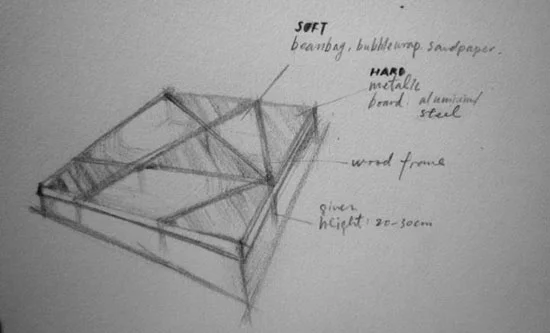 SOFT
beanbag. bubblewrap. sandpaper.
HARD
metalic
board: aluminium/
steel
wood frame
given
height: 20-30cm